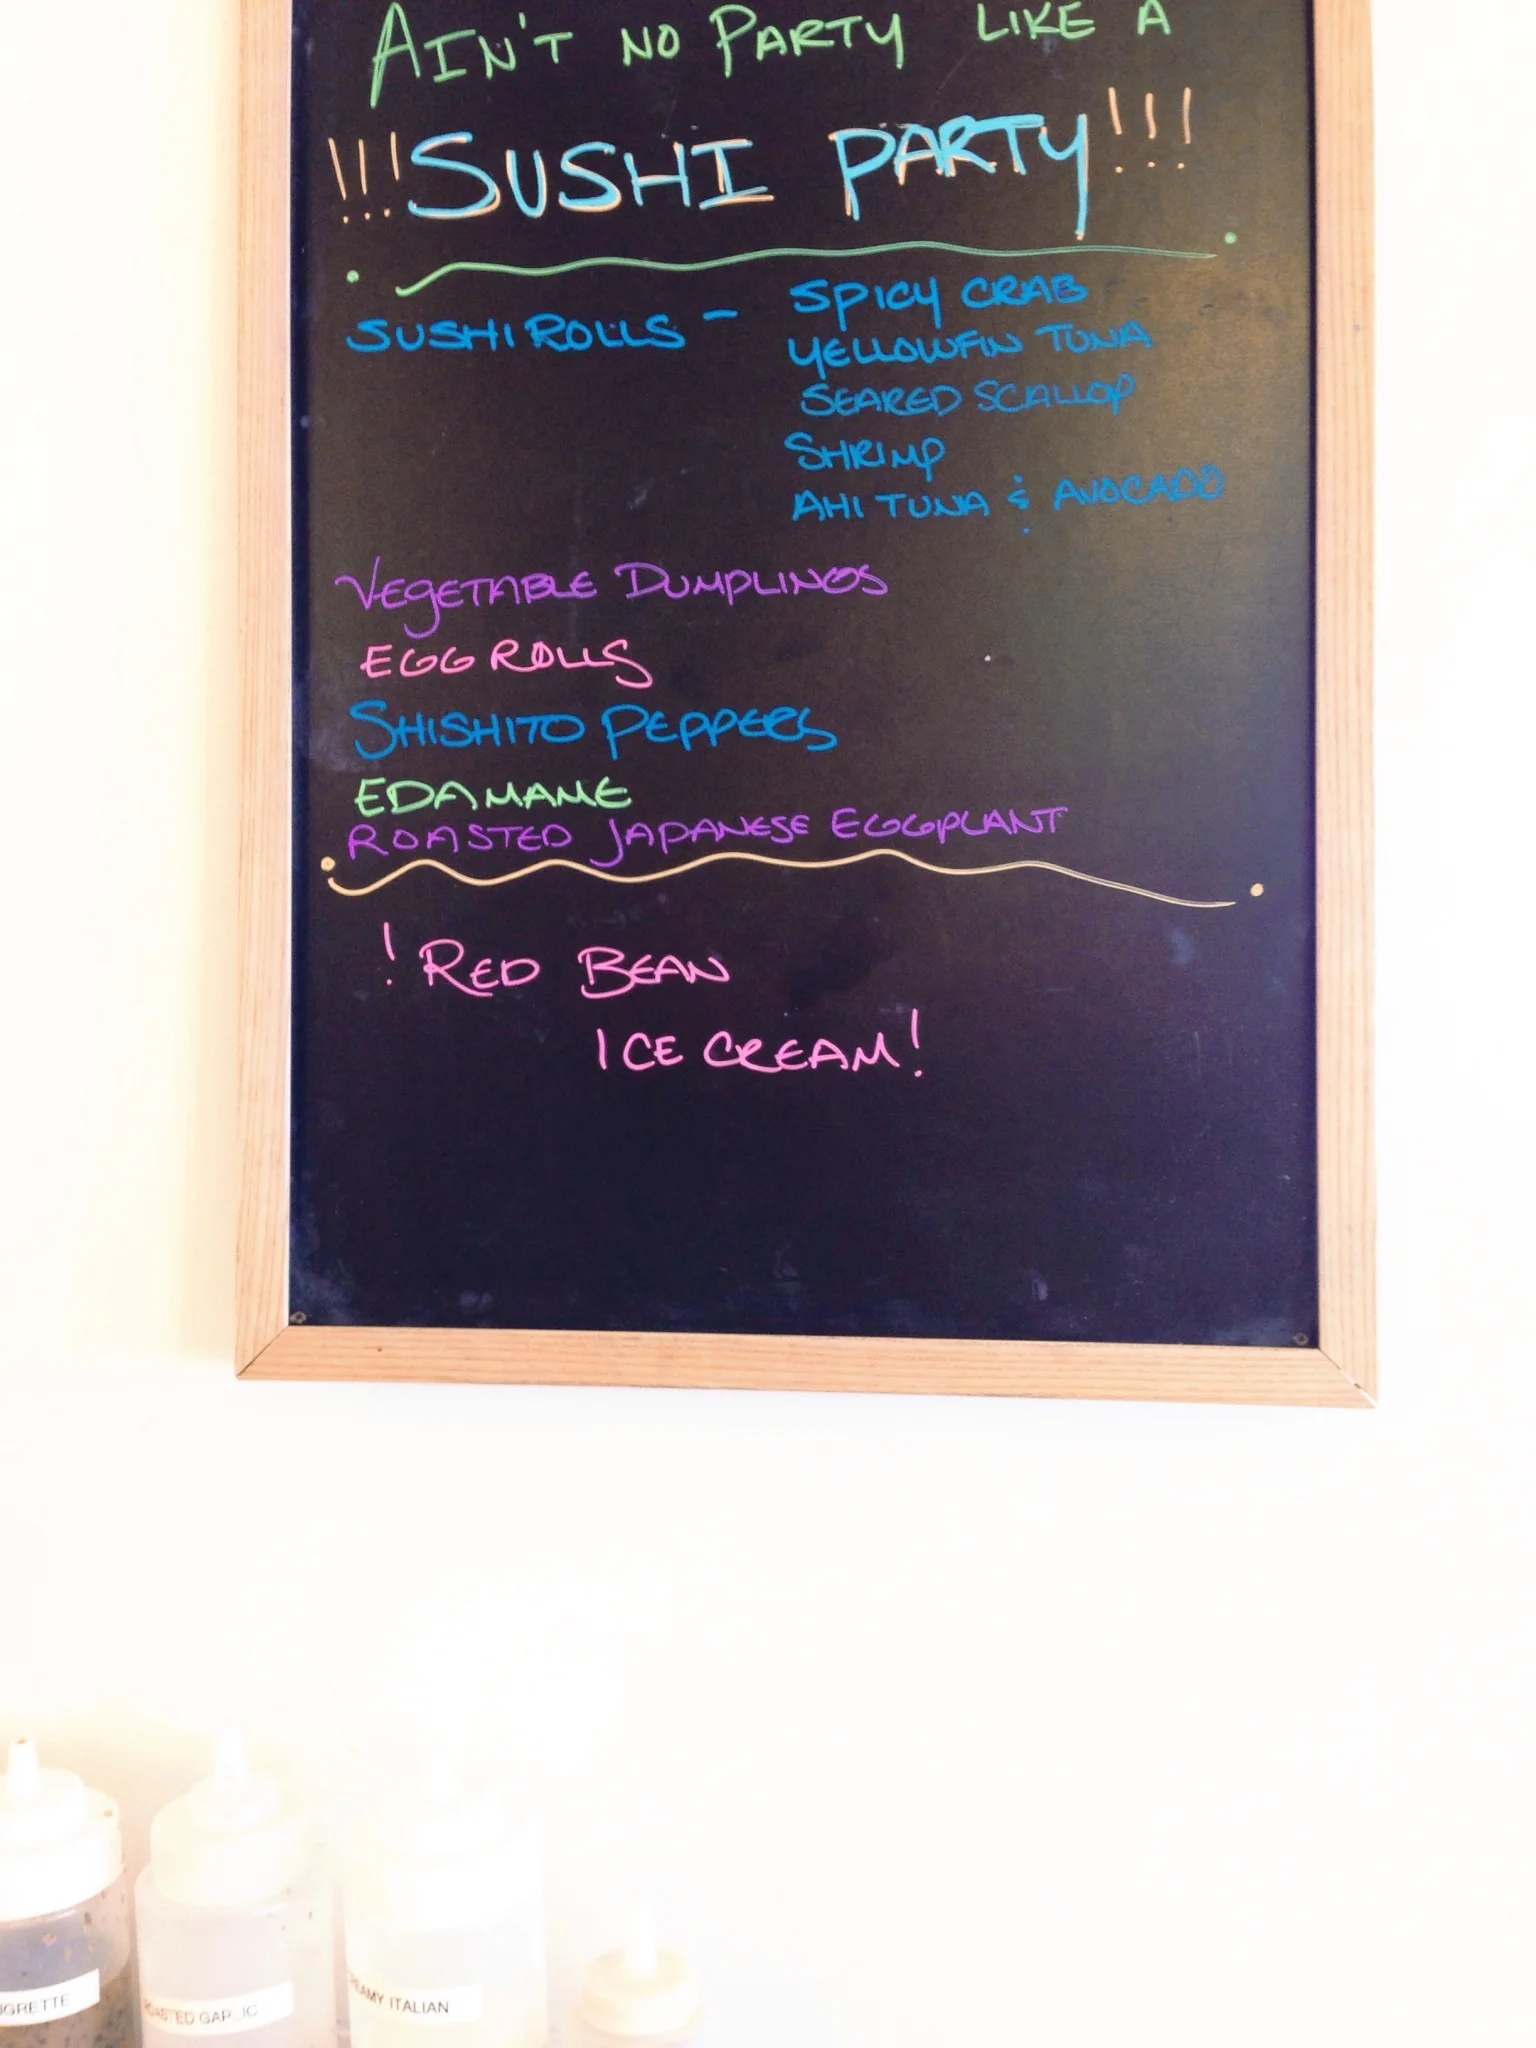 AIN'T NO PARTY LIKE A
!!!SUSHI PARTY!!!
SUSHI ROLLS - SPICY CRAB
YELLOWFIN TUNA
SEARED SCALLOP
SHRIMP
AHI TUNA & AVOCADO
VEGETABLE DUMPLINGS
EGG ROLLS
SHISHITO PEPPERS
EDAMAME
ROASTED JAPANESE EGGPLANT
! RED BEAN
ICE CREAM!
IGRETTE
OASTED GARLIC
REAMY ITALIAN